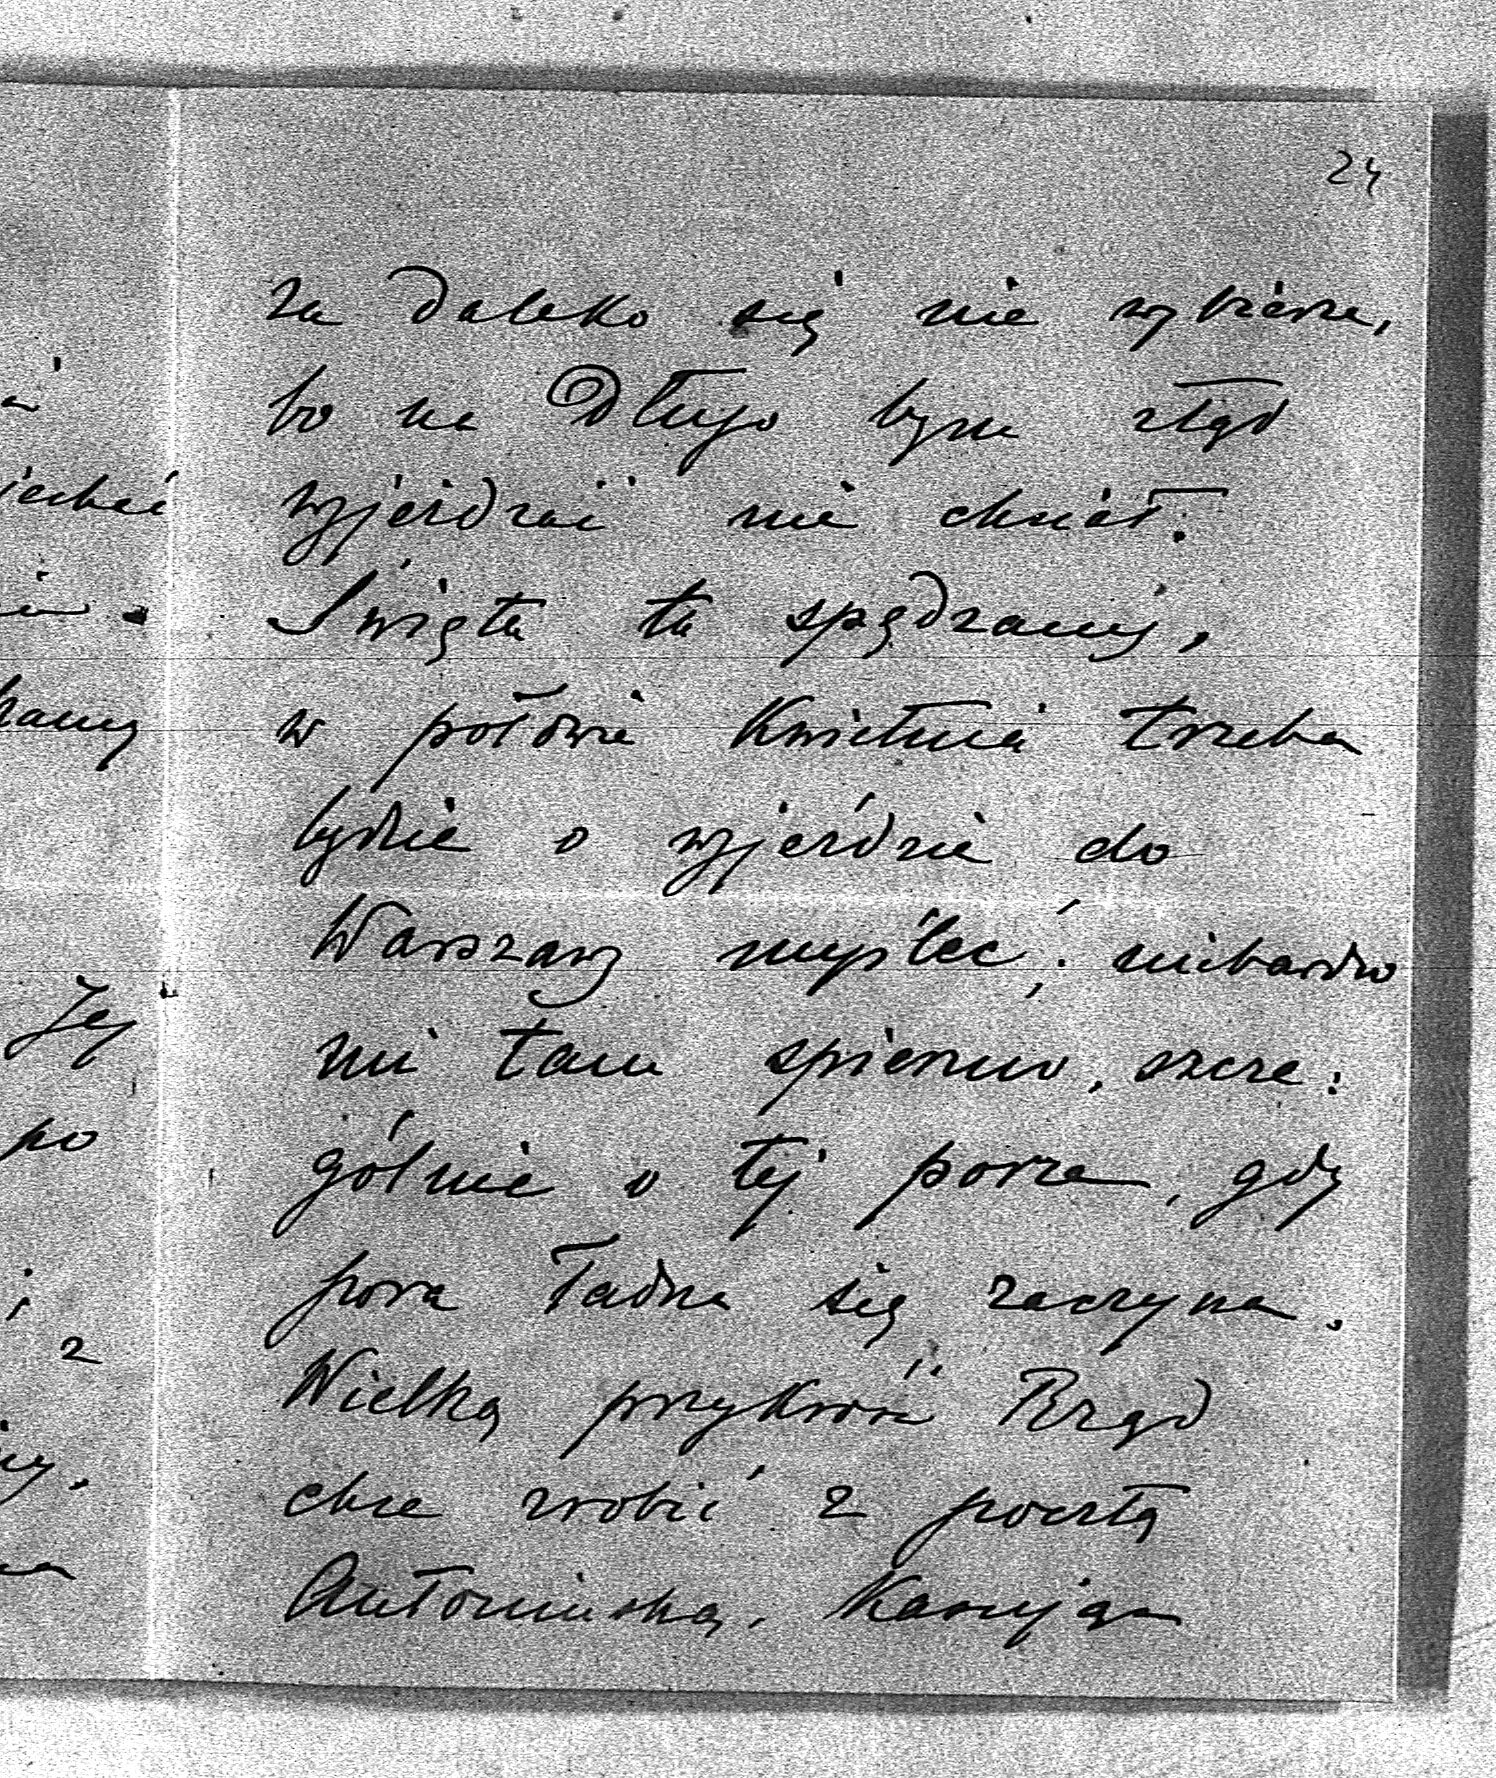 24
za daleko się nie wybierze,
bo na długo bym ztąd
wyjeżdzać nie chciał.
Święta tu spędzamy,
w połowie Kwietnia trzeba
będzie o wyjeździe do
Warszawy myśleć; niebardzo
mi tam spieszno, szcze:
gólnie o tej porze, gdy
pora ładna się zaczyna.
Wielką przykrość Rząd
chce zrobić z pocztą
Antonińską, Kasując
jechać
Jej
po
z